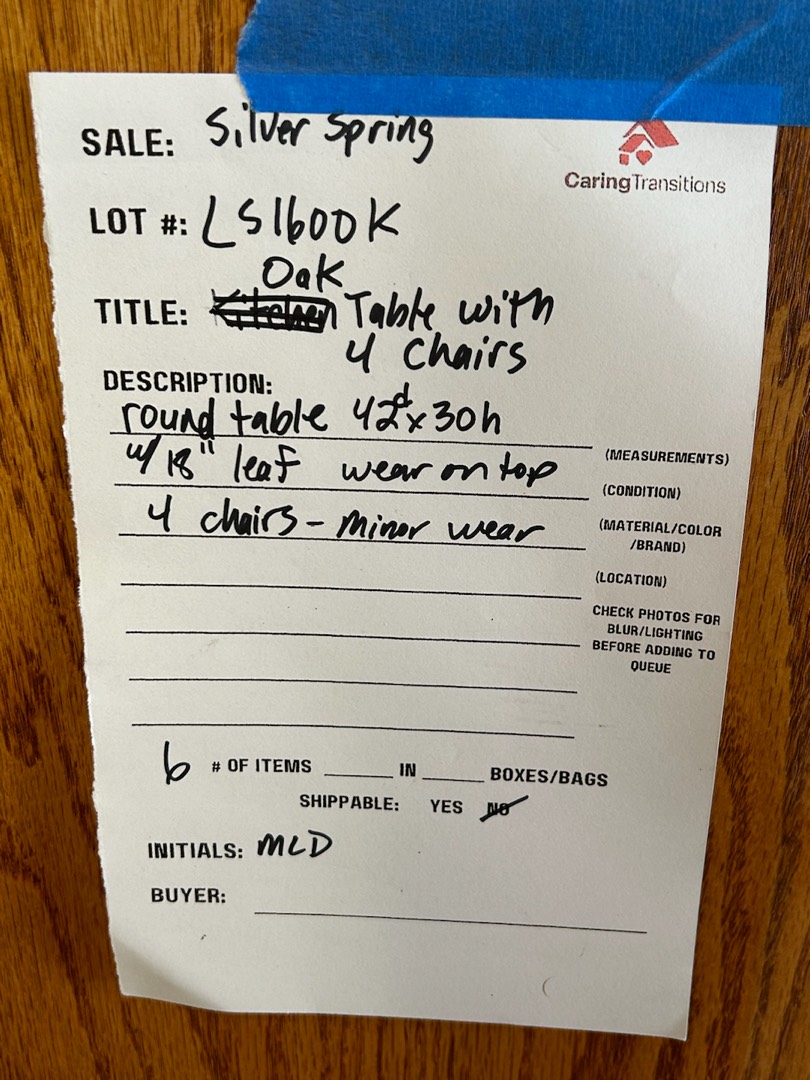 SALE: Silver Spring
CaringTransitions
LOT #: LS1600K
Oak
TITLE: Kitchen Table with
4 Chairs
DESCRIPTION:
round table 42d x 30h
(MEASUREMENTS)
w/ 18" leaf wear on top
(CONDITION)
4 chairs - minor wear
(MATERIAL/COLOR
/BRAND)
(LOCATION)
CHECK PHOTOS FOR
BLUR/LIGHTING
BEFORE ADDING TO
QUEUE
6 # OF ITEMS ______ IN ______ BOXES/BAGS
SHIPPABLE: YES NO
INITIALS: MLD
BUYER: